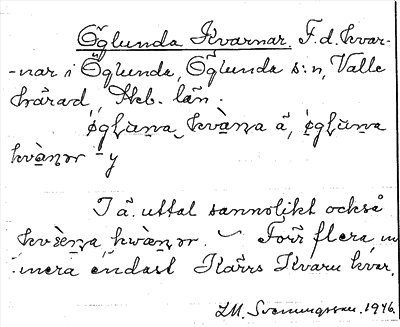 Öglunda Kvarnar. F.d. kvar-
-nar i Öglunda, Öglunda s:n, Valle
härad, Skb. län.
kvàna å,
kvànər - y
I ä. uttal sannolikt också
kvànər. – Förr flera, nu-
-mera endast Kärrs Kvarn kvar.
LM. Svenungsson. 1946.